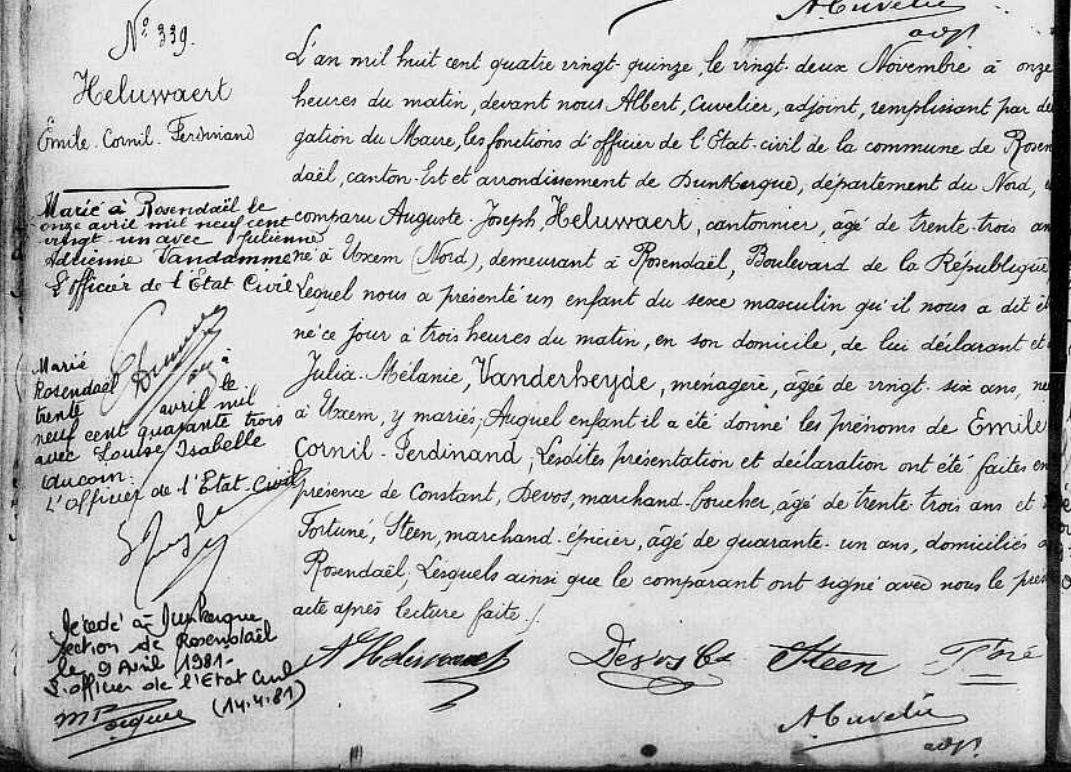 A. Cuvelier
adjt
N° 339.
Heluwaert
Émile. Cornil. Ferdinand
L'an mil huit cent quatre vingt-quinze, le vingt-deux Novembre à onze
heures du matin, devant nous Albert, Cuvelier, adjoint, remplissant par dé
gation du Maire, les fonctions d'officier de l'Etat-civil de la commune de Rosen
daël, canton-Est et arrondissement de Dunkerque, département du Nord,
comparu Auguste-Joseph, Heluwaert, cantonnier, âgé de trente-trois an
né à Uxem (Nord), demeurant à Rosendaël, Boulevard de la République,
Lequel nous a présenté un enfant du sexe masculin qu'il nous a dit êt
né ce jour à trois heures du matin, en son domicile, de lui déclarant et
Julia-Mélanie, Vanderheyde, ménagère, âgée de vingt-six ans, né
à Uxem, y mariés; Auquel enfant il a été donné les prénoms de Emile
Cornil-Ferdinand; Lesdites présentation et déclaration ont été faites en
présence de Constant, Devos, marchand-boucher, âgé de trente-trois ans et
Fortuné, Steen, marchand-épicier, âgé de quarante-un ans, domiciliés
Rosendaël; Lesquels ainsi que le comparant ont signé avec nous le prés
acte après lecture faite ./.
Marié à Rosendaël le
onze avril mil neuf cent
vingt-un avec Julienne
Adrienne Vandamme
L'officier de l'Etat Civil
Marié à
Rosendaël
trente avril mil
neuf cent quarante trois
avec Louise Isabelle
L'Officier de l'Etat-Civil
Décédé à Dunkerque
Section de Rosendaël
le 9 Avril 1981-
L'officier de l'Etat Civil
(14.4.81)
A Heluwaert Devos Ct Steen Fné
A. Cuvelier
adjt